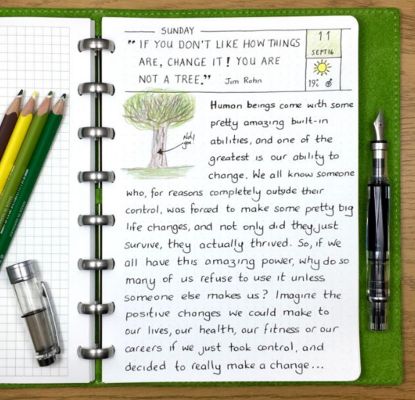 SUNDAY
"IF YOU DON'T LIKE HOW THINGS
ARE, CHANGE IT! YOU ARE
NOT A TREE." Jim Rohn
11
SEPT16
19°C
Not you!
Human beings come with some
pretty amazing built-in
abilities, and one of the
greatest is our ability to
change. We all know someone
who, for reasons completely outside their
control, was forced to make some pretty big
life changes, and not only did they just
survive, they actually thrived. So, if we
all have this amazing power, why do so
many of us refuse to use it unless
someone else makes us? Imagine the
positive changes we could make to
our lives, our health, our fitness or our
careers if we just took control, and
decided to really make a change...